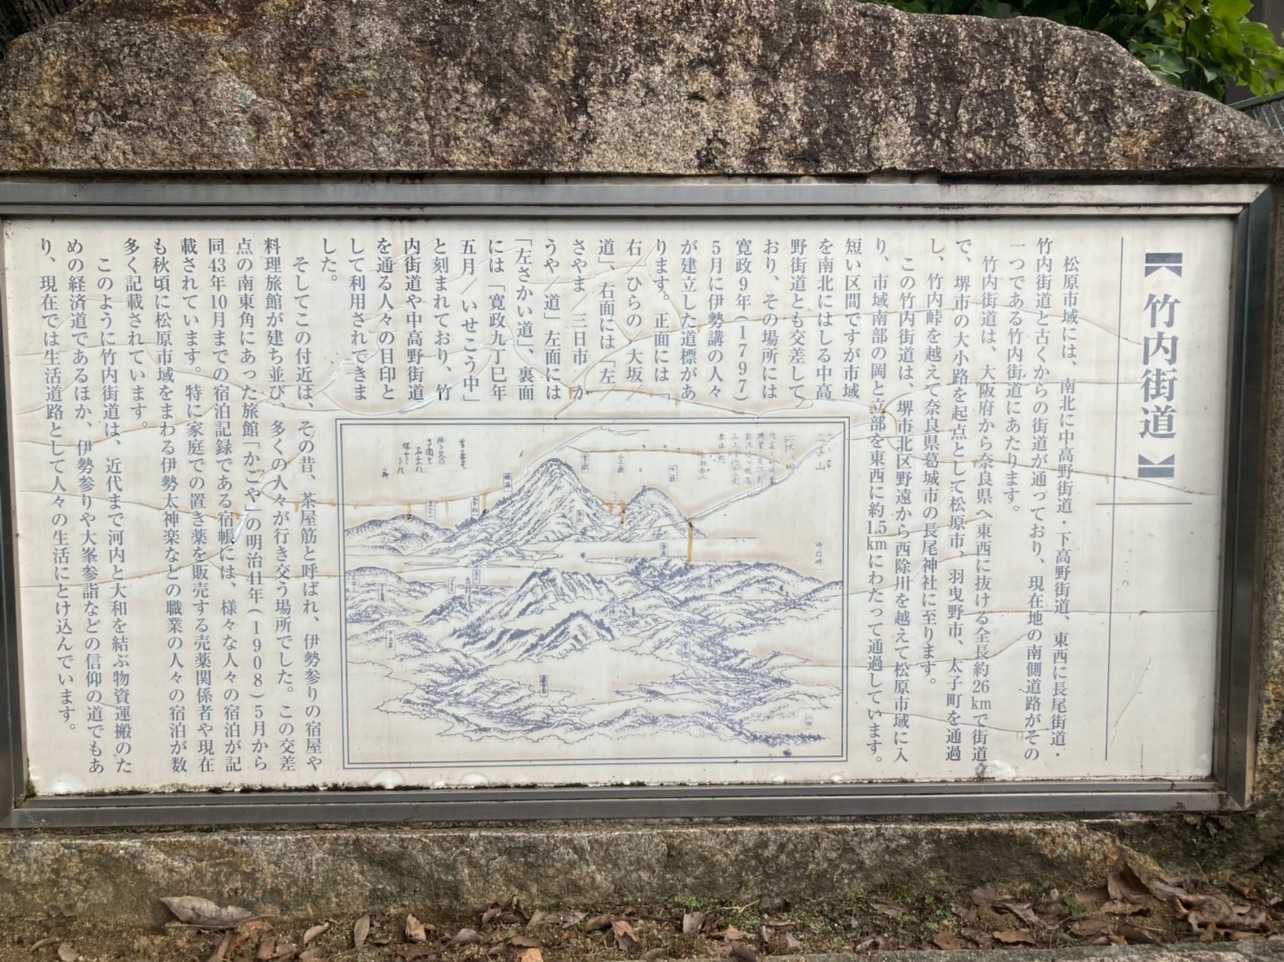 【竹内街道】
松原市域には、南北に中高野街道・下高野街道、東西に長尾街道・
竹内街道と古くからの街道が通っており、現在地の南側道路がその
一つである竹内街道にあたります。
竹内街道は、大阪府から奈良県へ東西に抜ける全長約26kmで街道
で、堺市の大小路を起点として松原市、羽曳野市、太子町を通過
し、竹内峠を越えて奈良県葛城市の長尾神社に至ります。
この竹内街道は、堺市北区野遠から西除川を越えて松原市域に入
り、市域南部の岡と立部を東西に約1.5kmにわたって通過しています。
短い区間ですが市域
を南北にはしる中高
野街道とも交差して
おり、その場所には
寛政9年(1797)
5月に伊勢講の人々
が建立した道標があ
ります。正面には「
右 ひらの 大坂
道」、右面には「左
さやま/三日市/か
うや/道」左面には
「左さかい道」、裏面
には「寛政九丁巳年
五月/いせこう中」
と刻まれており、竹
内街道や中高野街道
を通る人々の目印と
して利用されてきま
した。
そしてこの付近は、その昔、茶屋筋と呼ばれ、伊勢参りの宿屋や
料理旅館が建ち並び、多くの人々が行き交う場所でした。この交差
点の南東角にあった旅館「かごや」の明治41年(1908)5月から
同43年10月までの宿泊記録である宿帳には、様々な人々の宿泊が記
載されています。特に家庭での置き薬を販売する売薬関係者や現在
も秋頃に松原市域をまわる伊勢大神楽などの職業の人々の宿泊が数
多く記載されています。
このように竹内街道は、近代まで河内と大和を結ぶ物資運搬のた
めの経済道であるほか、伊勢参りや大峯参詣などの信仰の道でもあ
り、現在では生活道路として人々の生活にとけ込んでいます。